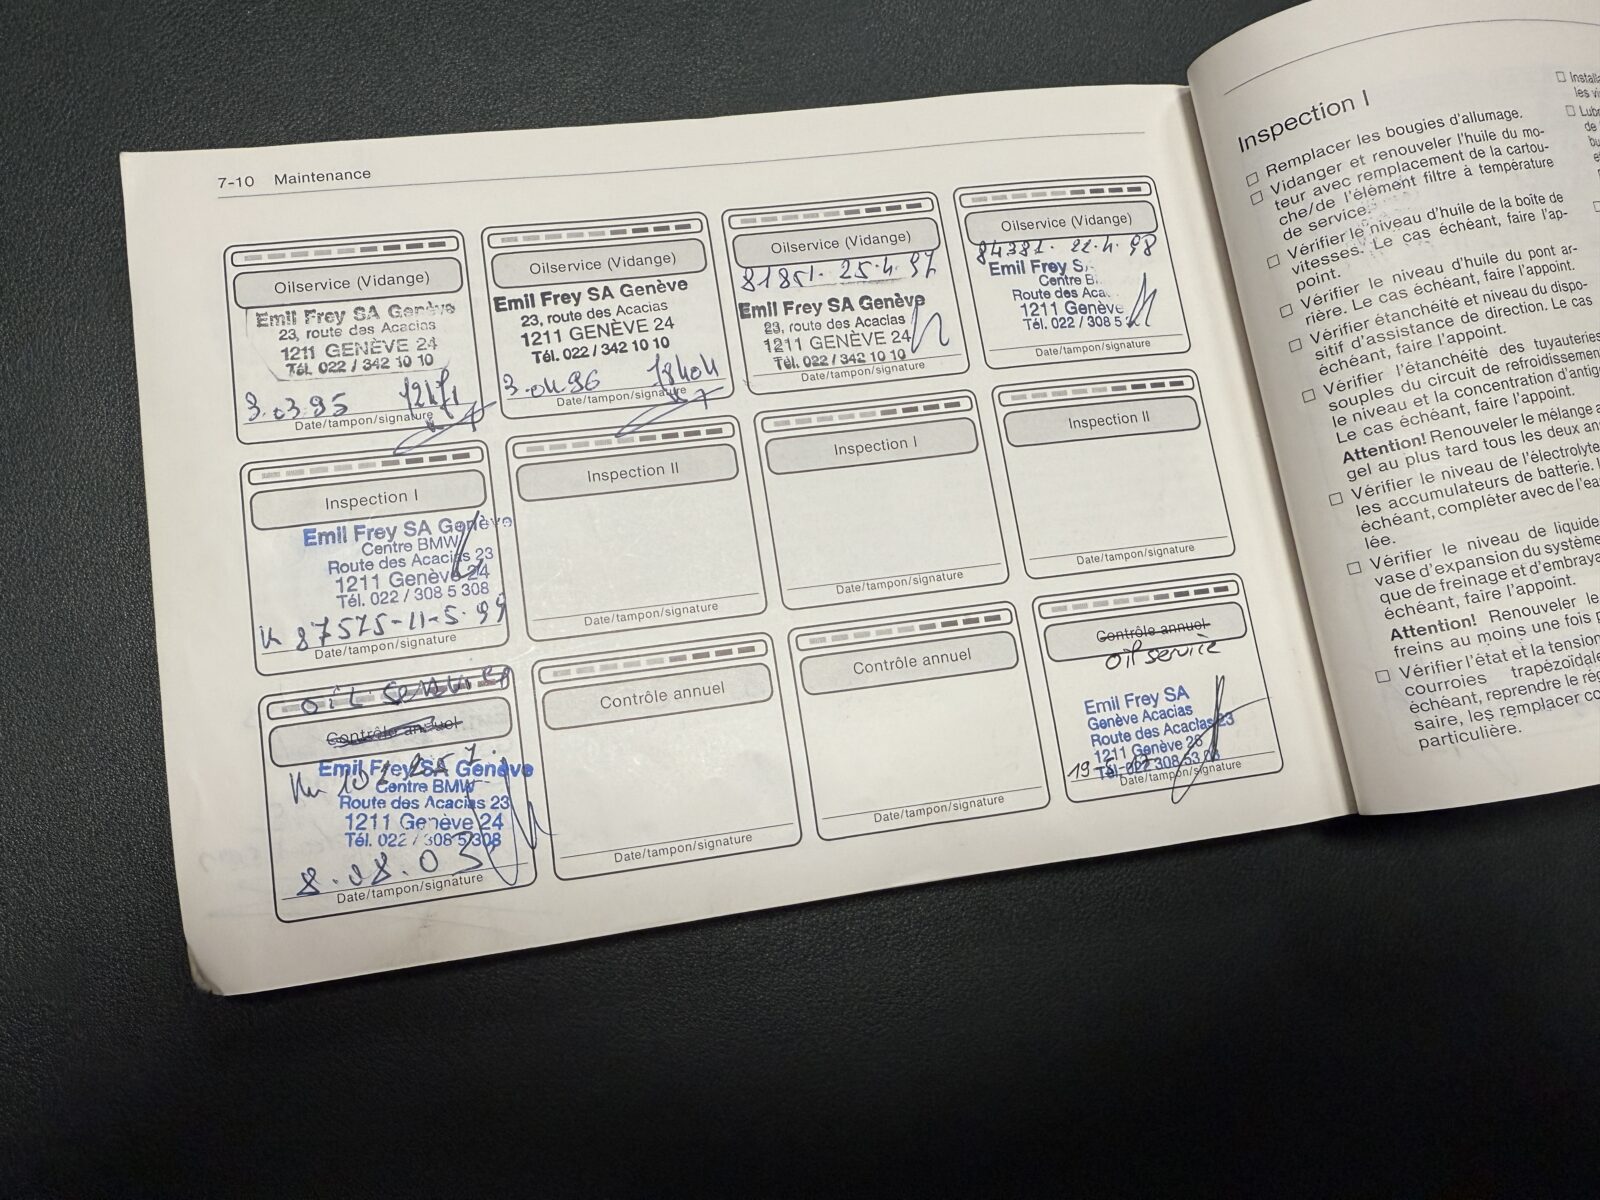 7-10 Maintenance
Oilservice (Vidange)
Emil Frey SA Genève
23, route des Acacias
1211 GENÈVE 24
Tél. 022 / 342 10 10
3.03.95
Date/tampon/signature
Oilservice (Vidange)
Emil Frey SA Genève
23, route des Acacias
1211 GENÈVE 24
Tél. 022 / 342 10 10
3.04.96
Date/tampon/signature
Oilservice (Vidange)
81851. 25.4.97
Emil Frey SA Genève
23, route des Acacias
1211 GENÈVE 24
Tél. 022 / 342 10 10
Date/tampon/signature
Oilservice (Vidange)
84381. 22.4.98
Emil Frey S.
Centre B
Route des Aca
1211 Genève
Tél. 022 / 308 5
Date/tampon/signature
Inspection I
Emil Frey SA Genève
Centre BMW
Route des Acacias 23
1211 Genève 24
Tél. 022 / 308 5 308
87575-11-5.99
Date/tampon/signature
Inspection II
Date/tampon/signature
Inspection I
Date/tampon/signature
Inspection II
Date/tampon/signature
OIL SERVICE
Contrôle annuel
Emil Frey SA Genève
Centre BMW
Route des Acacias 23
1211 Genève 24
Tél. 022 / 308 5 308
8.08.03
Date/tampon/signature
Contrôle annuel
Date/tampon/signature
Contrôle annuel
Date/tampon/signature
Contrôle annuel
oil service
Emil Frey SA
Genève Acacias
Route des Acacias 23
1211 Genève 26
Tél. 022 308 53
Date/tampon/signature
Inspection I
□ Remplacer les bougies d'allumage.
□ Vidanger et renouveler l'huile du mo-
teur avec remplacement de la cartou-
che/de l'élément filtre à température
de service.
□ Vérifier le niveau d'huile de la boîte de
vitesses. Le cas échéant, faire l'ap-
point.
□ Vérifier le niveau d'huile du pont ar-
rière. Le cas échéant, faire l'appoint.
□ Vérifier étanchéité et niveau du dispo-
sitif d'assistance de direction. Le cas
échéant, faire l'appoint.
□ Vérifier l'étanchéité des tuyauteries
souples du circuit de refroidissement
le niveau et la concentration d'antig
Le cas échéant, faire l'appoint.
Attention! Renouveler le mélange a
gel au plus tard tous les deux an
□ Vérifier le niveau de l'électrolyte
les accumulateurs de batterie.
échéant, compléter avec de l'ea
lée.
□ Vérifier le niveau de liquide
vase d'expansion du système
que de freinage et d'embraya
échéant, faire l'appoint.
Attention! Renouveler le
freins au moins une fois p
□ Vérifier l'état et la tension
courroies trapézoïdale
échéant, reprendre le rég
saire, les remplacer co
particulière.
□ Install
les vi
□ Lub
de